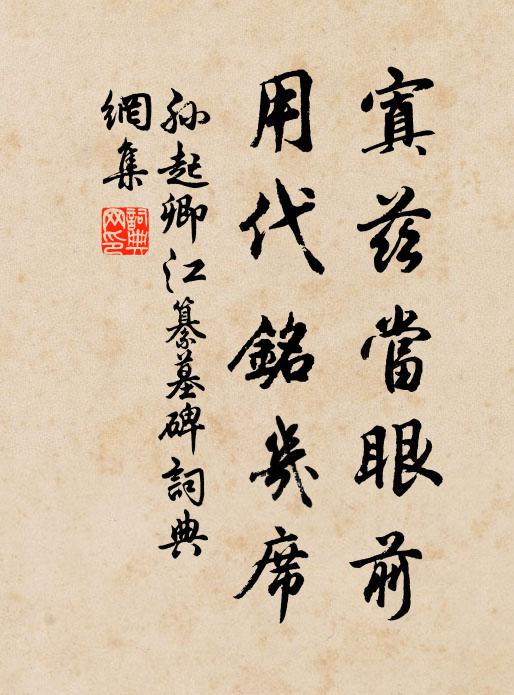 寘茲當眼前
用代銘几席
孫起卿江纂墓碑詞典
網集
詞典
网印